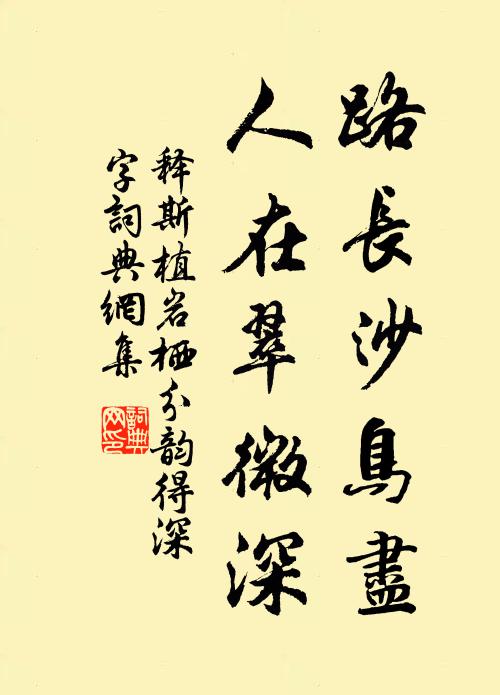 路長沙鳥盡
人在翠微深
释斯植岩栖分韵得深
字詞典網集
詞典網印